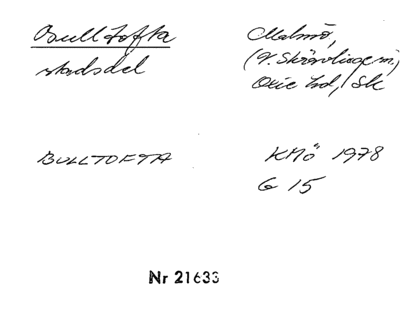 Bulltofta
stadsdel
Malmö,
(V. Skrävlinge sn,)
Oxie hd, Sk
BULLTOFTA
KMÖ 1978
G 15
Nr 21633